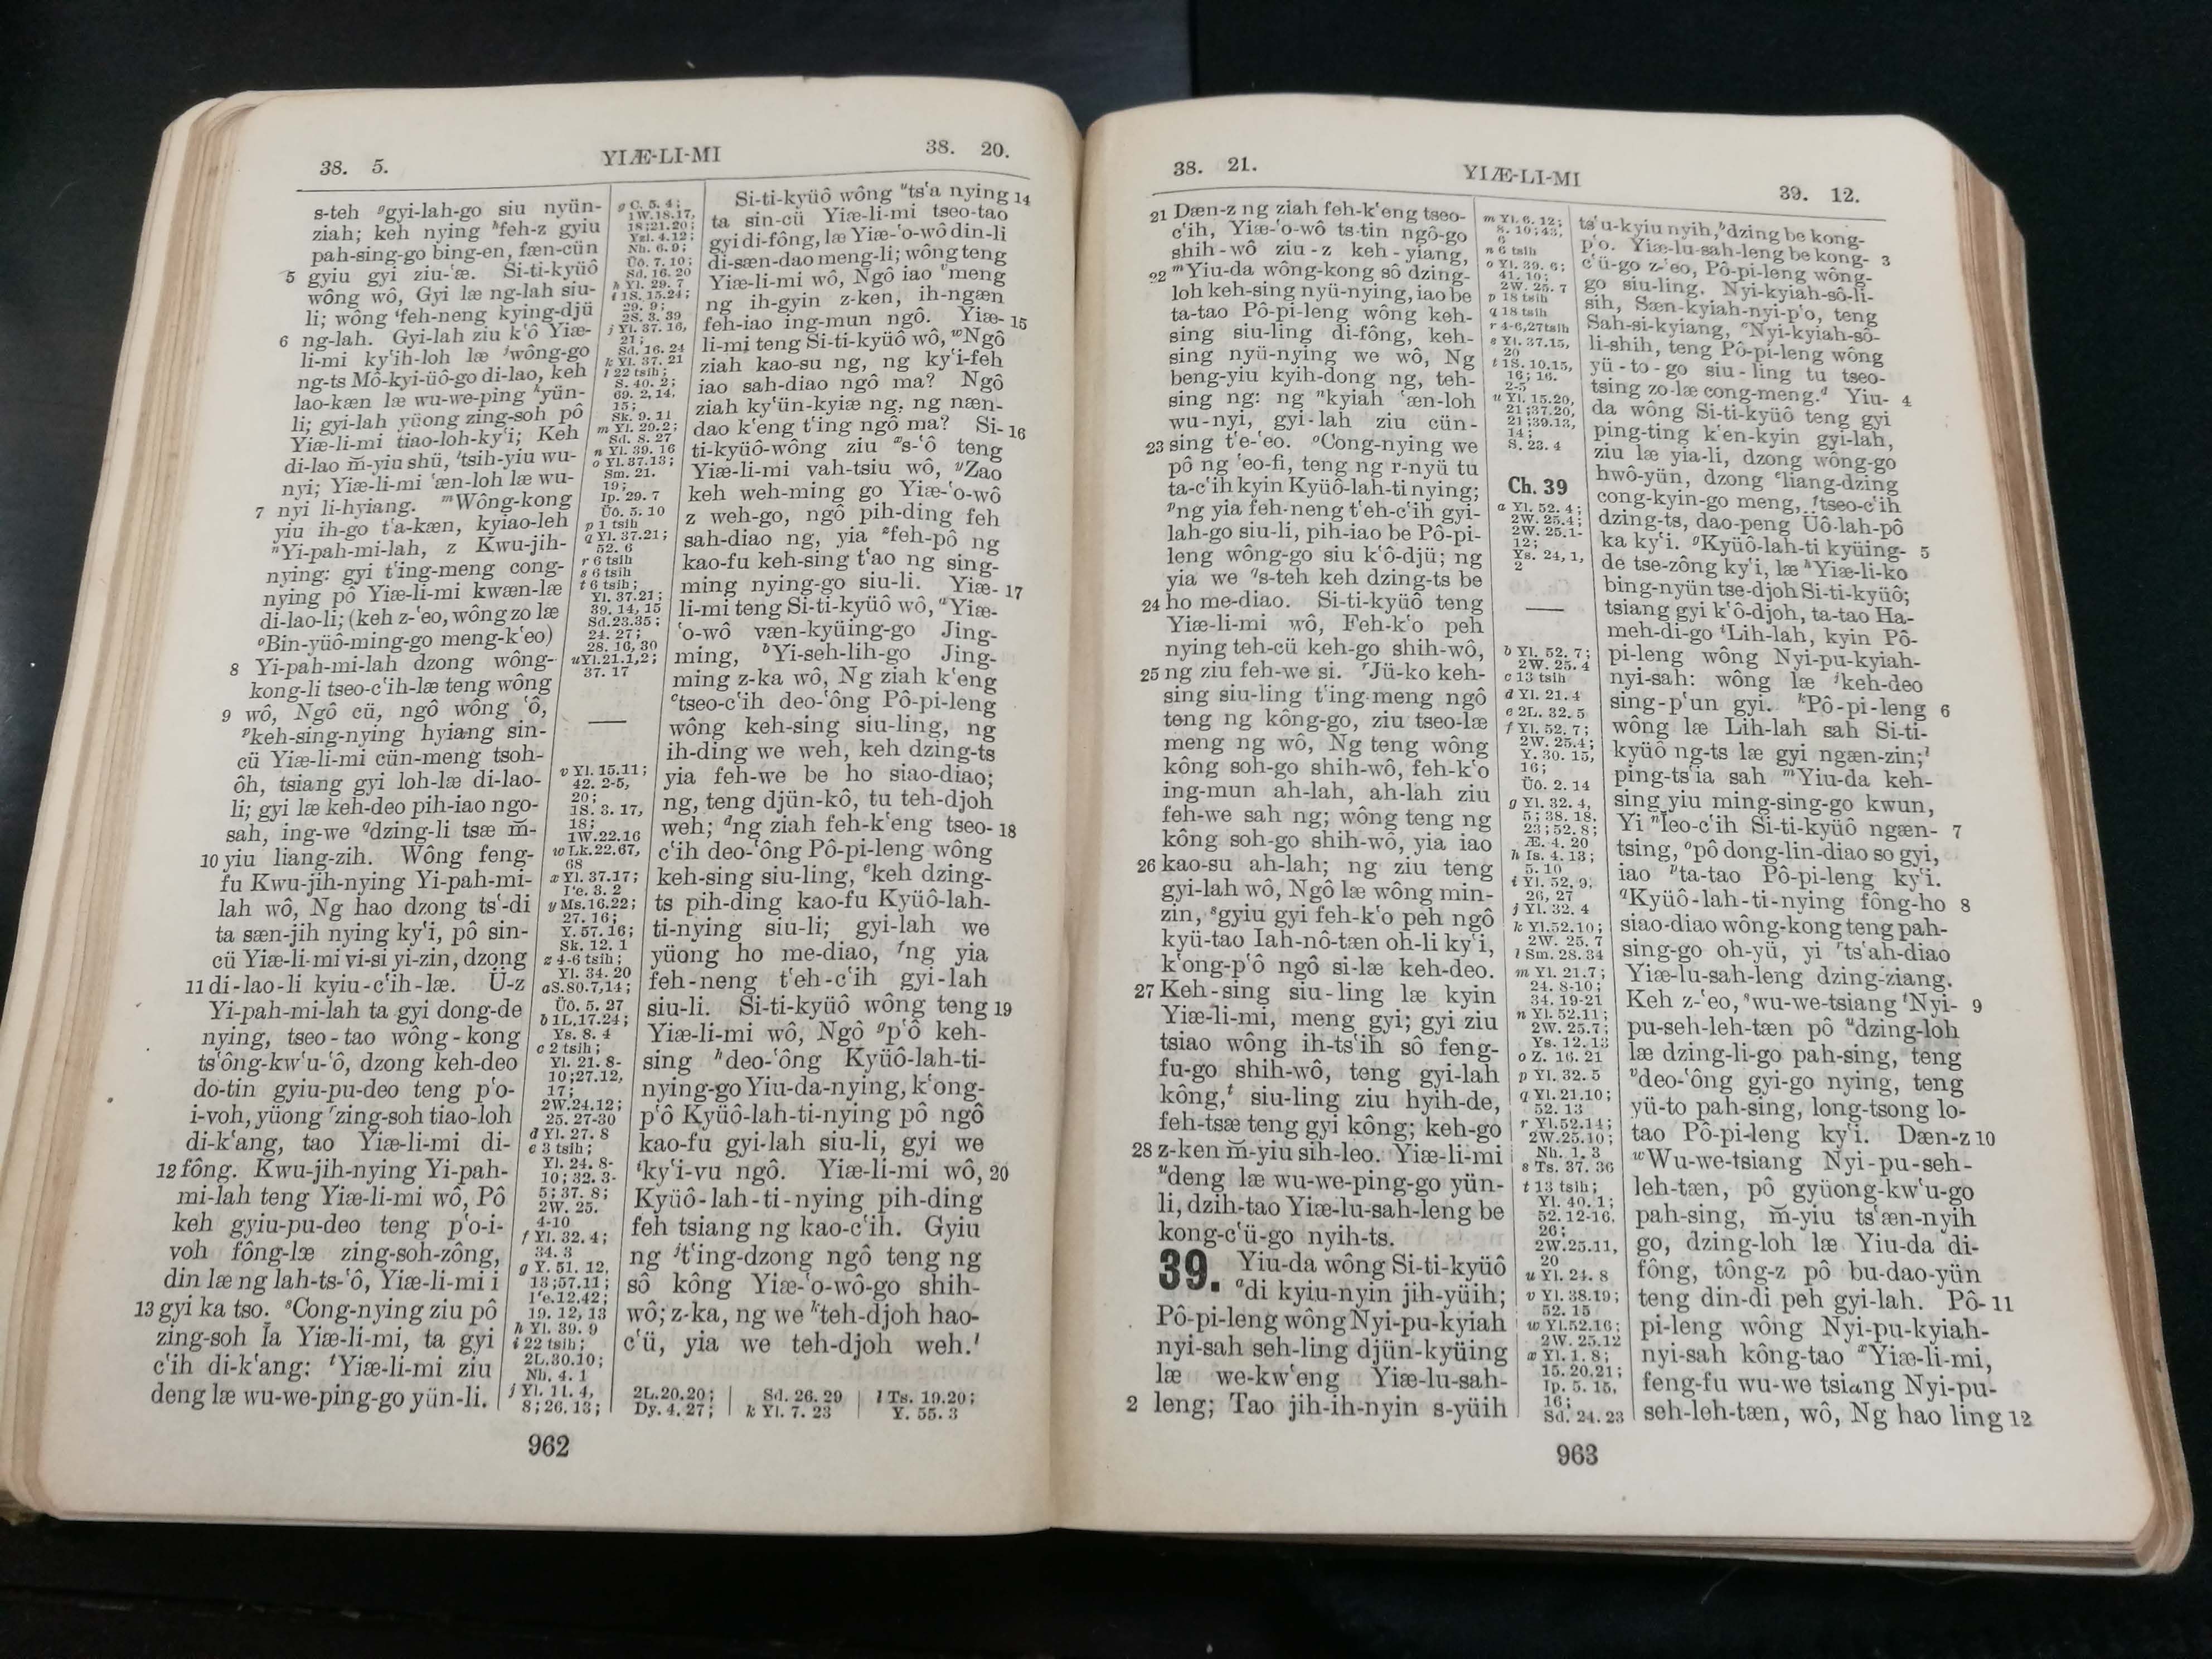 38. 5.
YIÆ-LI-MI
38. 20.
s-teh ᵍgyi-lah-go siu nyün-
ziah; keh nying ʰfeh-z gyiu
pah-sing-go bing-en, fæn-cün
5 gyiu gyi ziu-ʻæ. Si-ti-kyüô
wông wô, Gyi læ ng-lah siu-
li; wông ⁱfeh-neng kying-djü
6 ng-lah. Gyi-lah ziu kʻô Yiæ-
li-mi kyʻih-loh læ ʲwông-go
ng-ts Mô-kyi-üô-go di-lao, keh
lao-kæn læ wu-we-ping ᵏyün-
li; gyi-lah yüong zing-soh pô
Yiæ-li-mi tiao-loh-kyʻi; Keh
di-lao m̆-yiu shü, ˡtsih-yiu wu-
nyi; Yiæ-li-mi ʻæn-loh læ wu-
7 nyi li-hyiang. ᵐWông-kong
yiu ih-go tʻa-kæn, kyiao-leh
ⁿYi-pah-mi-lah, z Kwu-jih-
nying: gyi tʻing-meng cong-
nying pô Yiæ-li-mi kwæn-læ
di-lao-li; (keh z-ʻeo, wông zo læ
ᵒBin-yüô-ming-go meng-kʻeo)
8 Yi-pah-mi-lah dzong wông-
kong-li tseo-cʻih-læ teng wông
9 wô, Ngô cü, ngô wông ʻô,
ᵖkeh-sing-nying hyiang sin-
cü Yiæ-li-mi cün-meng tsoh-
ôh, tsiang gyi loh-læ di-lao-
li; gyi læ keh-deo pih-iao ngo-
sah, ing-we ᑫdzing-li tsæ m̆-
10 yiu liang-zih. Wông feng-
fu Kwu-jih-nying Yi-pah-mi-
lah wô, Ng hao dzong tsʻ-di
ta sæn-jih nying kyʻi, pô sin-
cü Yiæ-li-mi vi-si yi-zin, dzong
11 di-lao-li kyiu-cʻih-læ. Ü-z
Yi-pah-mi-lah ta gyi dong-de
nying, tseo-tao wông-kong
tsʻông-kwʻu-ʻô, dzong keh-deo
do-tin gyiu-pu-deo teng pʻo-
i-voh, yüong ʳzing-soh tiao-loh
di-kʻang, tao Yiæ-li-mi di-
12 fông. Kwu-jih-nying Yi-pah-
mi-lah teng Yiæ-li-mi wô, Pô
keh gyiu-pu-deo teng pʻo-i-
voh fông-læ zing-soh-zông,
din læ ng lah-ts-ʻô, Yiæ-li-mi i
13 gyi ka tso. ˢCong-nying ziu pô
zing-soh la Yiæ-li-mi, ta gyi
cʻih di-kʻang: ᵗYiæ-li-mi ziu
deng læ wu-we-ping-go yün-li.
g C. 5. 4;
1W.18.17,
18;21.20;
Yzl. 4.12;
Nh. 6. 9;
Üô. 7. 10;
Sd. 16. 20
h Yl. 29. 7
i 1S. 15.24;
29. 9;
2S. 3. 39
j Yl. 37. 16,
21;
Sd. 16. 24
k Yl. 37. 21
l 22 tsih;
S. 40. 2;
69. 2, 14,
15;
Sk. 9. 11
m Yl. 29.2;
Sd. 8. 27
n Yl. 39. 16
o Yl.37.13;
Sm. 21.
19;
Ip. 29. 7
Üô. 5. 10
p 1 tsih
q Yl. 37.21;
52. 6
r 6 tsih
s 6 tsih
t 6 tsih;
Yl. 37.21;
39. 14, 15
Sd.23.35;
24. 27;
28. 16, 30
u Yl.21.1,2;
37. 17
v Yl. 15.11;
42. 2-5,
20;
1S. 3. 17,
18;
1W.22.16
w Lk.22.67,
68
x Yl. 37.17;
Iʻe. 3. 2
y Ms.16.22;
27. 16;
Y. 57. 16;
Sk. 12. 1
z 4-6 tsih;
Yl. 34. 20
a S.80.7,14;
Üô. 5. 27
b 1L.17.24;
Ys. 8. 4
c 2 tsih;
Yl. 21. 8-
10;27.12,
17;
2W.24.12;
25. 27-30
d Yl. 27. 8
e 3 tsih;
Yl. 24. 8-
10; 32. 3-
5; 37. 8;
2W. 25.
4-10
f Yl. 32. 4;
34. 3
g Y. 51. 12,
13;57.11;
Iʻe.12.42;
19. 12, 13
h Yl. 39. 9
i 22 tsih;
2L.30.10;
Nh. 4. 1
j Yl. 11. 4,
8; 26. 13;
Si-ti-kyüô wông ᵘtsʻa nying 14
ta sin-cü Yiæ-li-mi tseo-tao
gyi di-fông, læ Yiæ-ʻo-wô din-li
di-sæn-dao meng-li; wông teng
Yiæ-li-mi wô, Ngô iao ᵛmeng
ng ih-gyin z-ken, ih-ngæn
feh-iao ing-mun ngô. Yiæ- 15
li-mi teng Si-ti-kyüô wô, ʷNgô
ziah kao-su ng, ng kyʻi-feh
iao sah-diao ngô ma? Ngô
ziah kyʻün-kyiæ ng, ng næn-
dao kʻeng tʻing ngô ma? Si- 16
ti-kyüô-wông ziu ˣs-ʻô teng
Yiæ-li-mi vah-tsiu wô, ʸZao
keh weh-ming go Yiæ-ʻo-wô
z weh-go, ngô pih-ding feh
sah-diao ng, yia ᶻfeh-pô ng
kao-fu keh-sing tʻao ng sing-
ming nying-go siu-li. Yiæ- 17
li-mi teng Si-ti-kyüô wô, ᵃYiæ-
ʻo-wô væn-kyüing-go Jing-
ming, ᵇYi-seh-lih-go Jing-
ming z-ka wô, Ng ziah kʻeng
ᶜtseo-cʻih deo-ʻông Pô-pi-leng
wông keh-sing siu-ling, ng
ih-ding we weh, keh dzing-ts
yia feh-we be ho siao-diao;
ng, teng djün-kô, tu teh-djoh
weh; ᵈng ziah feh-kʻeng tseo- 18
cʻih deo-ʻông Pô-pi-leng wông
keh-sing siu-ling, ᵉkeh dzing-
ts pih-ding kao-fu Kyüô-lah-
ti-nying siu-li; gyi-lah we
yüong ho me-diao, ᶠng yia
feh-neng tʻeh-cʻih gyi-lah
siu-li. Si-ti-kyüô wông teng 19
Yiæ-li-mi wô, Ngô ᵍpʻô keh-
sing ʰdeo-ʻông Kyüô-lah-ti-
nying-go Yiu-da-nying, kʻong-
pʻô Kyüô-lah-ti-nying pô ngô
kao-fu gyi-lah siu-li, gyi we
ⁱkyʻi-vu ngô. Yiæ-li-mi wô, 20
Kyüô-lah-ti-nying pih-ding
feh tsiang ng kao-cʻih. Gyiu
ng ʲtʻing-dzong ngô teng ng
sô kông Yiæ-ʻo-wô-go shih-
wô; z-ka, ng we ᵏteh-djoh hao-
cʻü, yia we teh-djoh weh.ˡ
2L.20.20; Sd. 26. 29 l Ts. 19.20;
Dy. 4. 27; k Yl. 7. 23 Y. 55. 3
962
38. 21.
YIÆ-LI-MI
39. 12.
21 Dæn-z ng ziah feh-kʻeng tseo-
cʻih, Yiæ-ʻo-wô ts-tin ngô-go
shih-wô ziu-z keh-yiang,
22 ᵐYiu-da wông-kong sô dzing-
loh keh-sing nyü-nying, iao be
ta-tao Pô-pi-leng wông keh-
sing siu-ling di-fông, keh-
sing nyü-nying we wô, Ng
beng-yiu kyih-dong ng, teh-
sing ng: ng ⁿkyiah ʻæn-loh
wu-nyi, gyi-lah ziu cün-
23 sing tʻe-ʻeo. ᵒCong-nying we
pô ng ʻeo-fi, teng ng r-nyü tu
ta-cʻih kyin Kyüô-lah-ti nying;
ᵖng yia feh-neng tʻeh-cʻih gyi-
lah-go siu-li, pih-iao be Pô-pi-
leng wông-go siu kʻô-djü; ng
yia we ᑫs-teh keh dzing-ts be
24 ho me-diao. Si-ti-kyüô teng
Yiæ-li-mi wô, Feh-kʻo peh
nying teh-cü keh-go shih-wô,
25 ng ziu feh-we si. ʳJü-ko keh-
sing siu-ling tʻing-meng ngô
teng ng kông-go, ziu tseo-læ
meng ng wô, Ng teng wông
kông soh-go shih-wô, feh-kʻo
ing-mun ah-lah, ah-lah ziu
feh-we sah ng; wông teng ng
kông soh-go shih-wô, yia iao
26 kao-su ah-lah; ng ziu teng
gyi-lah wô, Ngô læ wông min-
zin, ˢgyiu gyi feh-kʻo peh ngô
kyü-tao Iah-nô-tæn oh-li kyʻi,
kʻong-pʻô ngô si-læ keh-deo.
27 Keh-sing siu-ling læ kyin
Yiæ-li-mi, meng gyi; gyi ziu
tsiao wông ih-tsʻih sô feng-
fu-go shih-wô, teng gyi-lah
kông,ᵗ siu-ling ziu hyih-de,
feh-tsæ teng gyi kông; keh-go
28 z-ken m̆-yiu sih-leo. Yiæ-li-mi
ᵘdeng læ wu-we-ping-go yün-
li, dzih-tao Yiæ-lu-sah-leng be
kong-cʻü-go nyih-ts.
39. Yiu-da wông Si-ti-kyüô
ᵃdi kyiu-nyin jih-yüih;
Pô-pi-leng wông Nyi-pu-kyiah
nyi-sah seh-ling djün-kyüing
læ we-kwʻeng Yiæ-lu-sah-
2 leng; Tao jih-ih-nyin s-yüih
m Yl. 6. 12;
8. 10;43,
6
n 6 tsih
o Yl. 39. 6;
41. 10;
2W. 25. 7
p 18 tsih
q 18 tsih
r 4-6,27tsih
s Yl. 37.15,
20
t 1S. 10.15,
16; 16.
2-5
u Yl. 15.20,
21;37.20,
21;39.13,
14;
S. 23. 4
Ch. 39
a Yl. 52. 4;
2W. 25.4;
2W. 25.1-
12;
Ys. 24, 1,
2
b Yl. 52. 7;
2W. 25. 4
c 13 tsih
d Yl. 21. 4
e 2L. 32. 5
f Yl. 52. 7;
2W. 25.4;
Y. 30. 15,
16;
Üô. 2. 14
g Yl. 32. 4,
5; 38. 18.
23;52. 8;
Æ. 4. 20
h Is. 4. 13;
5. 10
i Yl. 52. 9,
26, 27
j Yl. 32. 4
k Yl.52.10;
2W. 25. 7
l Sm. 28. 34
m Yl. 21.7;
24. 8-10;
34. 19-21
n Yl. 52.11;
2W. 25.7;
Ys. 12. 13
o Z. 16. 21
p Yl. 32. 5
q Yl. 21.10;
52. 13
r Yl.52.14;
2W.25.10;
Nh. 1. 3
s Ts. 37. 36
t 13 tsih;
Yl. 40. 1;
52. 12-16,
26;
2W.25.11,
20
u Yl. 24. 8
v Yl. 38.19;
52. 15
w Yl.52.16;
2W. 25.12
x Yl. 1. 8;
15.20.21;
Ip. 5. 15,
16;
Sd. 24. 23
tsʻu-kyiu nyih,ᵇdzing be kong-
pʻo. Yiæ-lu-sah-leng be kong- 3
cʻü-go z-ʻeo, Pô-pi-leng wông-
go siu-ling. Nyi-kyiah-sô-li-
sih, Sæn-kyiah-nyi-pʻo, teng
Sah-si-kyiang, ᶜNyi-kyiah-sô-
li-shih, teng Pô-pi-leng wông
yü-to-go siu-ling tu tseo-
tsing zo-læ cong-meng.ᵈ Yiu- 4
da wông Si-ti-kyüô teng gyi
ping-ting kʻen-kyin gyi-lah,
ziu læ yia-li, dzong wông-go
hwô-yün, dzong ᵉliang-dzing
cong-kyin-go meng, ᶠtseo-cʻih
dzing-ts, dao-peng Üô-lah-pô
ka kyʻi. ᵍKyüô-lah-ti kyüing- 5
de tse-zông kyʻi, læ ʰYiæ-li-ko
bing-nyün tse-djoh Si-ti-kyüô;
tsiang gyi kʻô-djoh, ta-tao Ha-
meh-di-go ⁱLih-lah, kyin Pô-
pi-leng wông Nyi-pu-kyiah-
nyi-sah: wông læ ʲkeh-deo
sing-pʻun gyi. ᵏPô-pi-leng 6
wông læ Lih-lah sah Si-ti-
kyüô ng-ts læ gyi ngæn-zin;ˡ
ping-tsʻia sah ᵐYiu-da keh-
sing yiu ming-sing-go kwun,
Yi ⁿleo-cʻih Si-ti-kyüô ngæn- 7
tsing, ᵒpô dong-lin-diao so gyi,
iao ᵖta-tao Pô-pi-leng kyʻi.
ᑫKyüô-lah-ti-nying fông-ho 8
siao-diao wông-kong teng pah-
sing-go oh-yü, yi ʳtsʻah-diao
Yiæ-lu-sah-leng dzing-ziang.
Keh z-ʻeo, ˢwu-we-tsiang ᵗNyi- 9
pu-seh-leh-tæn pô ᵘdzing-loh
læ dzing-li-go pah-sing, teng
ᵛdeo-ʻông gyi-go nying, teng
yü-to pah-sing, long-tsong lo-
tao Pô-pi-leng kyʻi. Dæn-z 10
ʷWu-we-tsiang Nyi-pu-seh-
leh-tæn, pô gyüong-kwʻu-go
pah-sing, m̆-yiu tsʻæn-nyih
go, dzing-loh læ Yiu-da di-
fông, tông-z pô bu-dao-yün
teng din-di peh gyi-lah. Pô- 11
pi-leng wông Nyi-pu-kyiah-
nyi-sah kông-tao ˣYiæ-li-mi,
feng-fu wu-we tsiang Nyi-pu-
seh-leh-tæn, wô, Ng hao ling 12
963